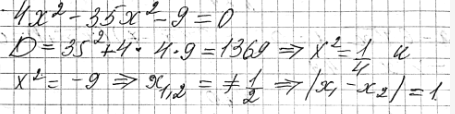 4x² - 35x² - 9 = 0
D = 35² + 4 · 4 · 9 = 1369 ⇒ x² = 1/4 и
x² = -9 ⇒ x₁,₂ = ∓1/2 ⇒ |x₁ - x₂| = 1